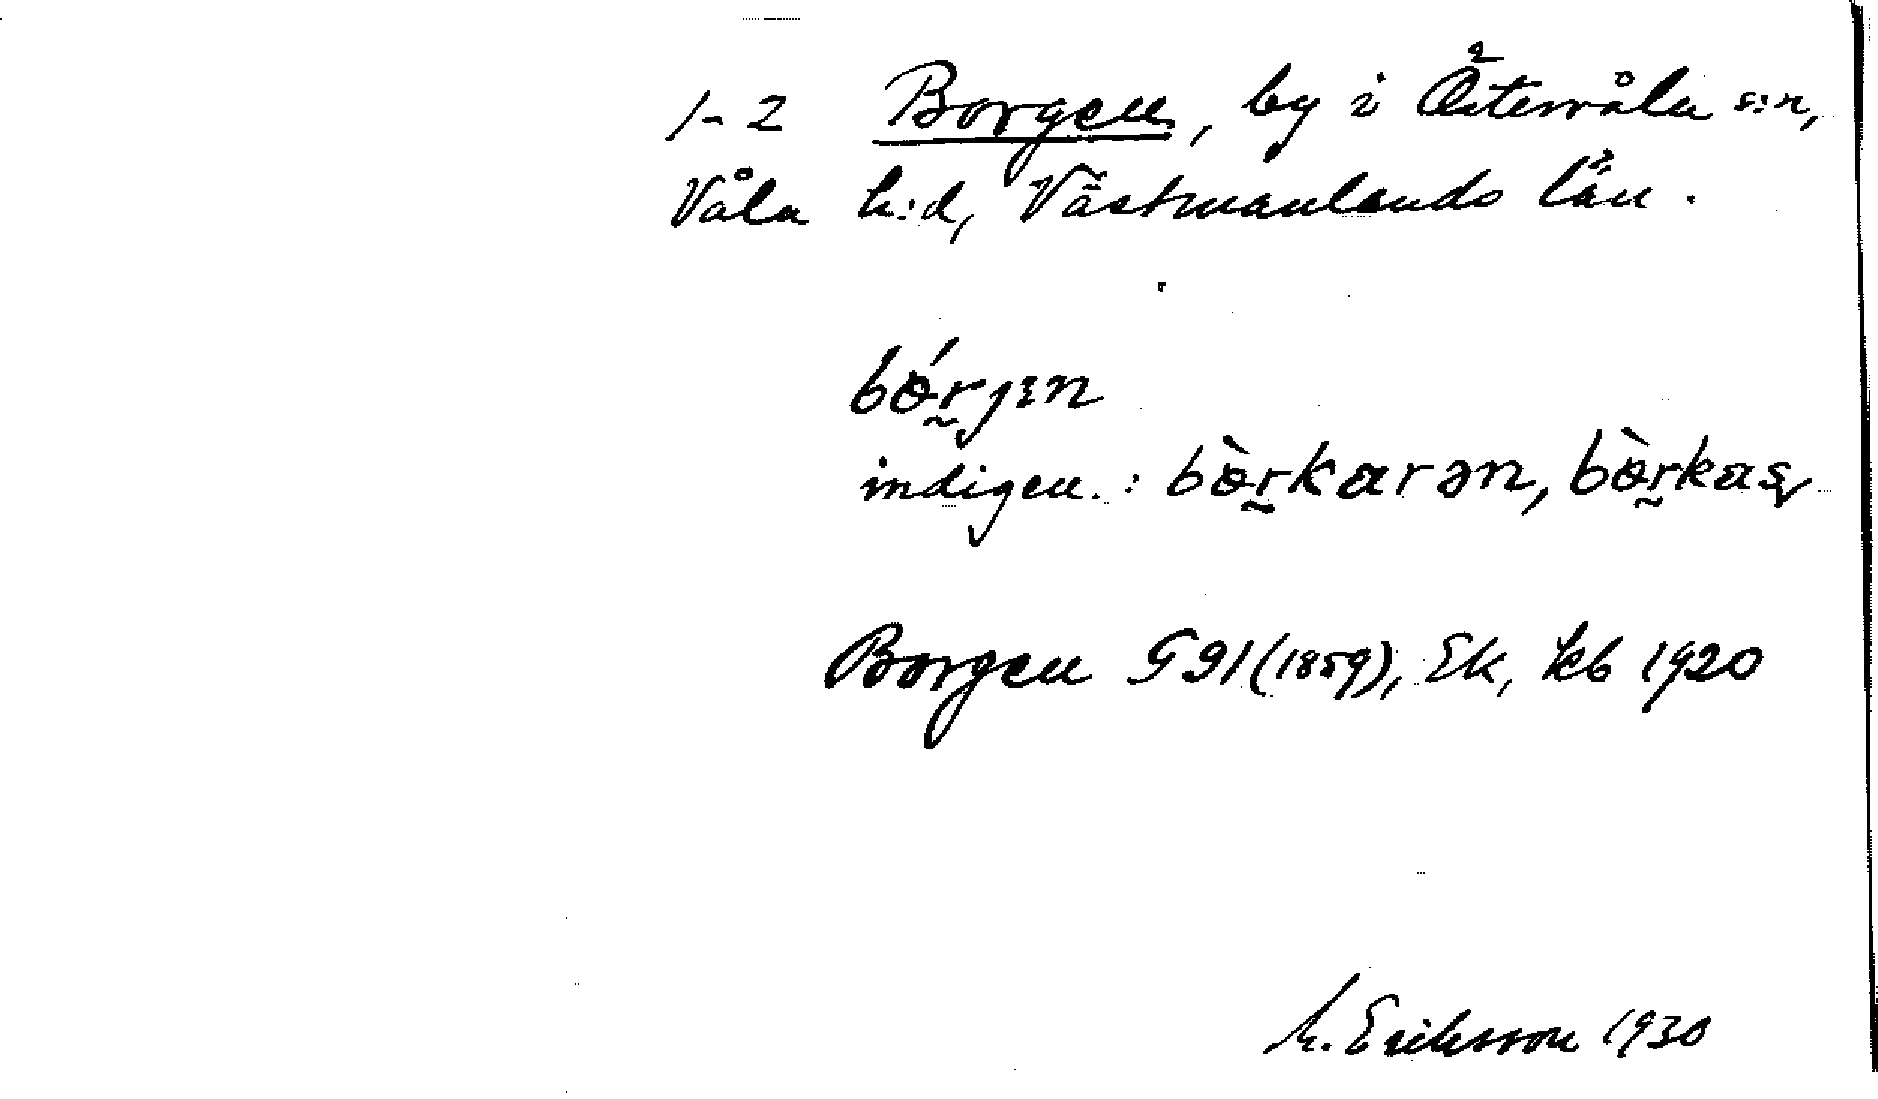 1-2 Borgen, by i Östervåla s:n,
Våla h:d, Västmanlands län.
bǿr̰jɪn
indigen.: bɵ̀r̰karən, bɵ̀r̰kaʂ
Borgen G 91 (1859), Ek, kb 1920
M. Eriksson 1930